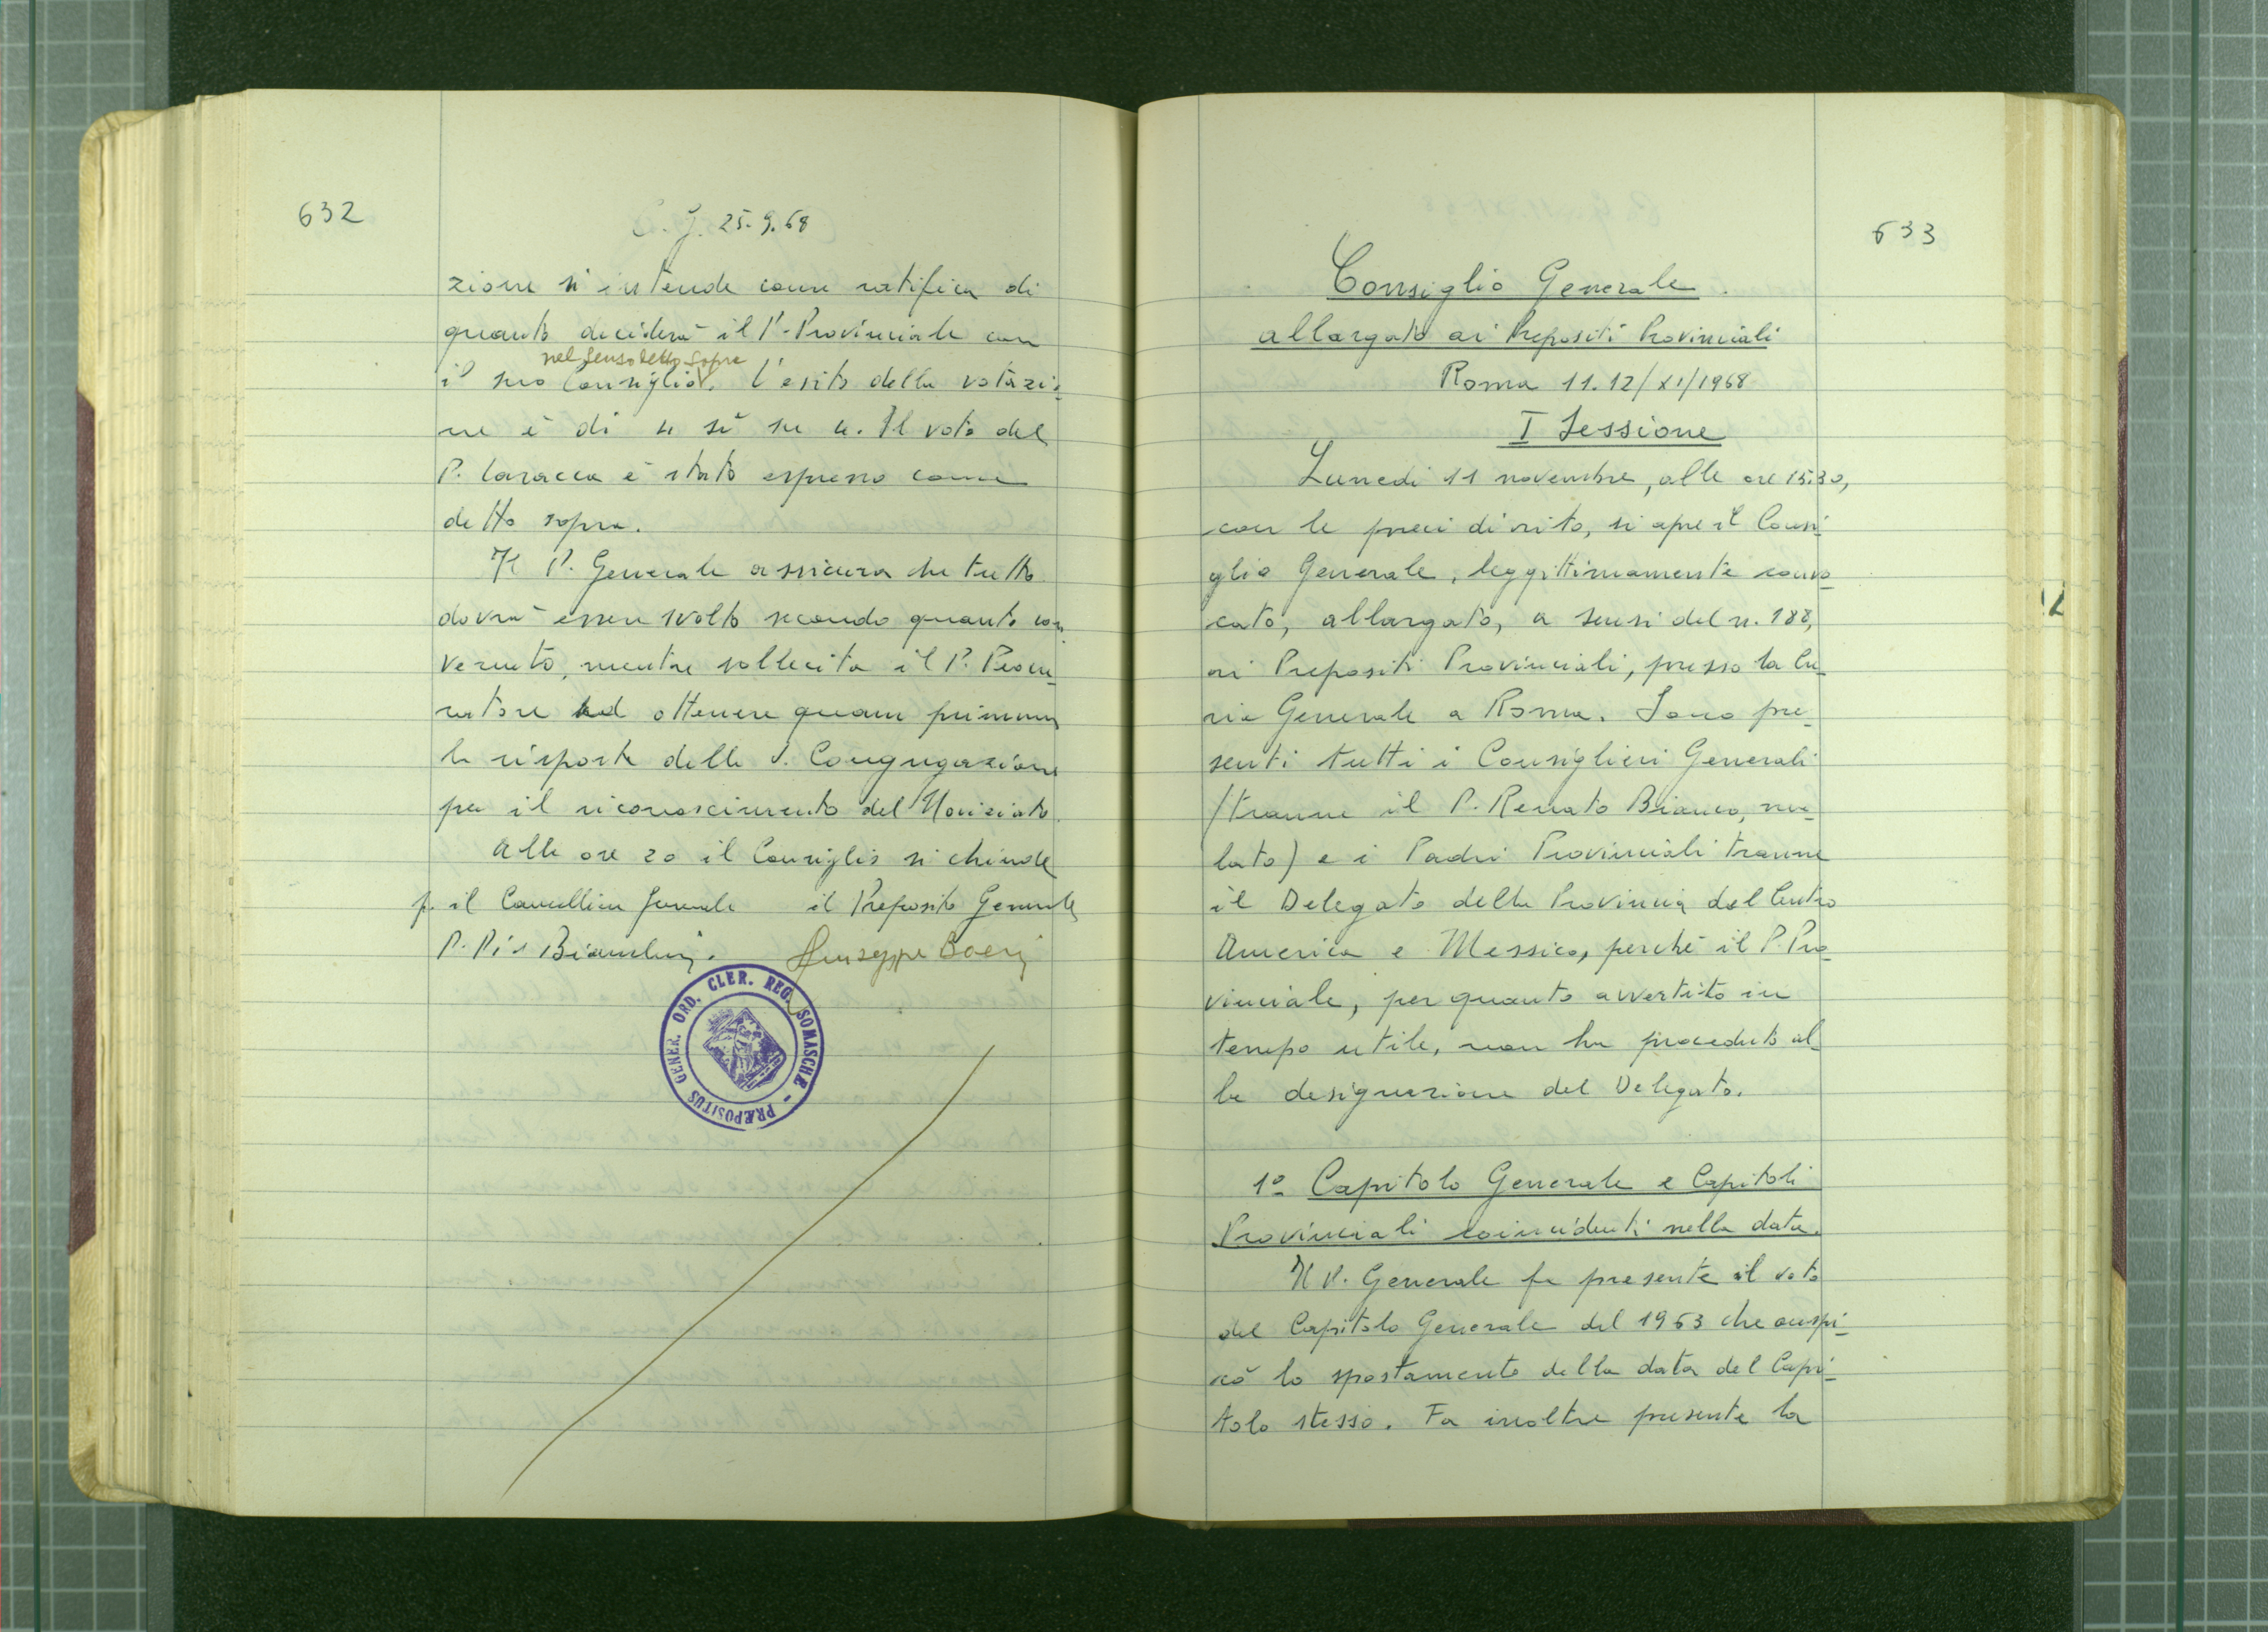 632
C. G. 25.9.68
zione si intende come ratifica di
quanto deciderà il P. Provinciale con
nel senso detto sopra
il suo Consiglio. L'esito della votazio_
ne è di 4 sì su 4. Il voto del
P. Caracca è stato espresso come
detto sopra.
Il P. Generale assicura che tutto
dovrà essere svolto secondo quanto con_
venuto, mentre sollecita il P. Procu_
ratore ad ottenere quam primum
la risposta della S. Congregazione
per il riconoscimento del Noviziato.
Alle ore 20 il Consiglio si chiude
p. il Cancelliere Generale il Preposito Generale
P. Pio Bianchini. Giuseppe Boeri
GENER. ORD. CLER. REG. SOMASCHÆ - PRÆPOSITUS
633
Consiglio Generale
allargato ai Prepositi Provinciali
Roma 11.12/XI/1968
I Sessione
Lunedi 11 novembre, alle ore 15.30,
con le preci di rito, si apre il Consi_
glio Generale, leggittimamente convo_
cato, allargato, a sensi del n. 188,
ai Prepositi Provinciali, presso la Cu_
ria Generale a Roma. Sono pre_
senti tutti i Consiglieri Generali
(tranne il P. Renato Bianco, ma_
lato) e i Padri Provinciali tranne
il Delegato della Provincia del Centro
America e Messico, perchè il P. Pro_
vinciale, per quanto avvertito in
tempo utile, non ha proceduto al_
la designazione del Delegato.
1º Capitolo Generale e Capitoli
Provinciali coincidenti nella data.
Il P. Generale fa presente il voto
del Capitolo Generale del 1963 che auspi_
cò lo spostamento della data del Capi_
tolo stesso. Fa inoltre presente la